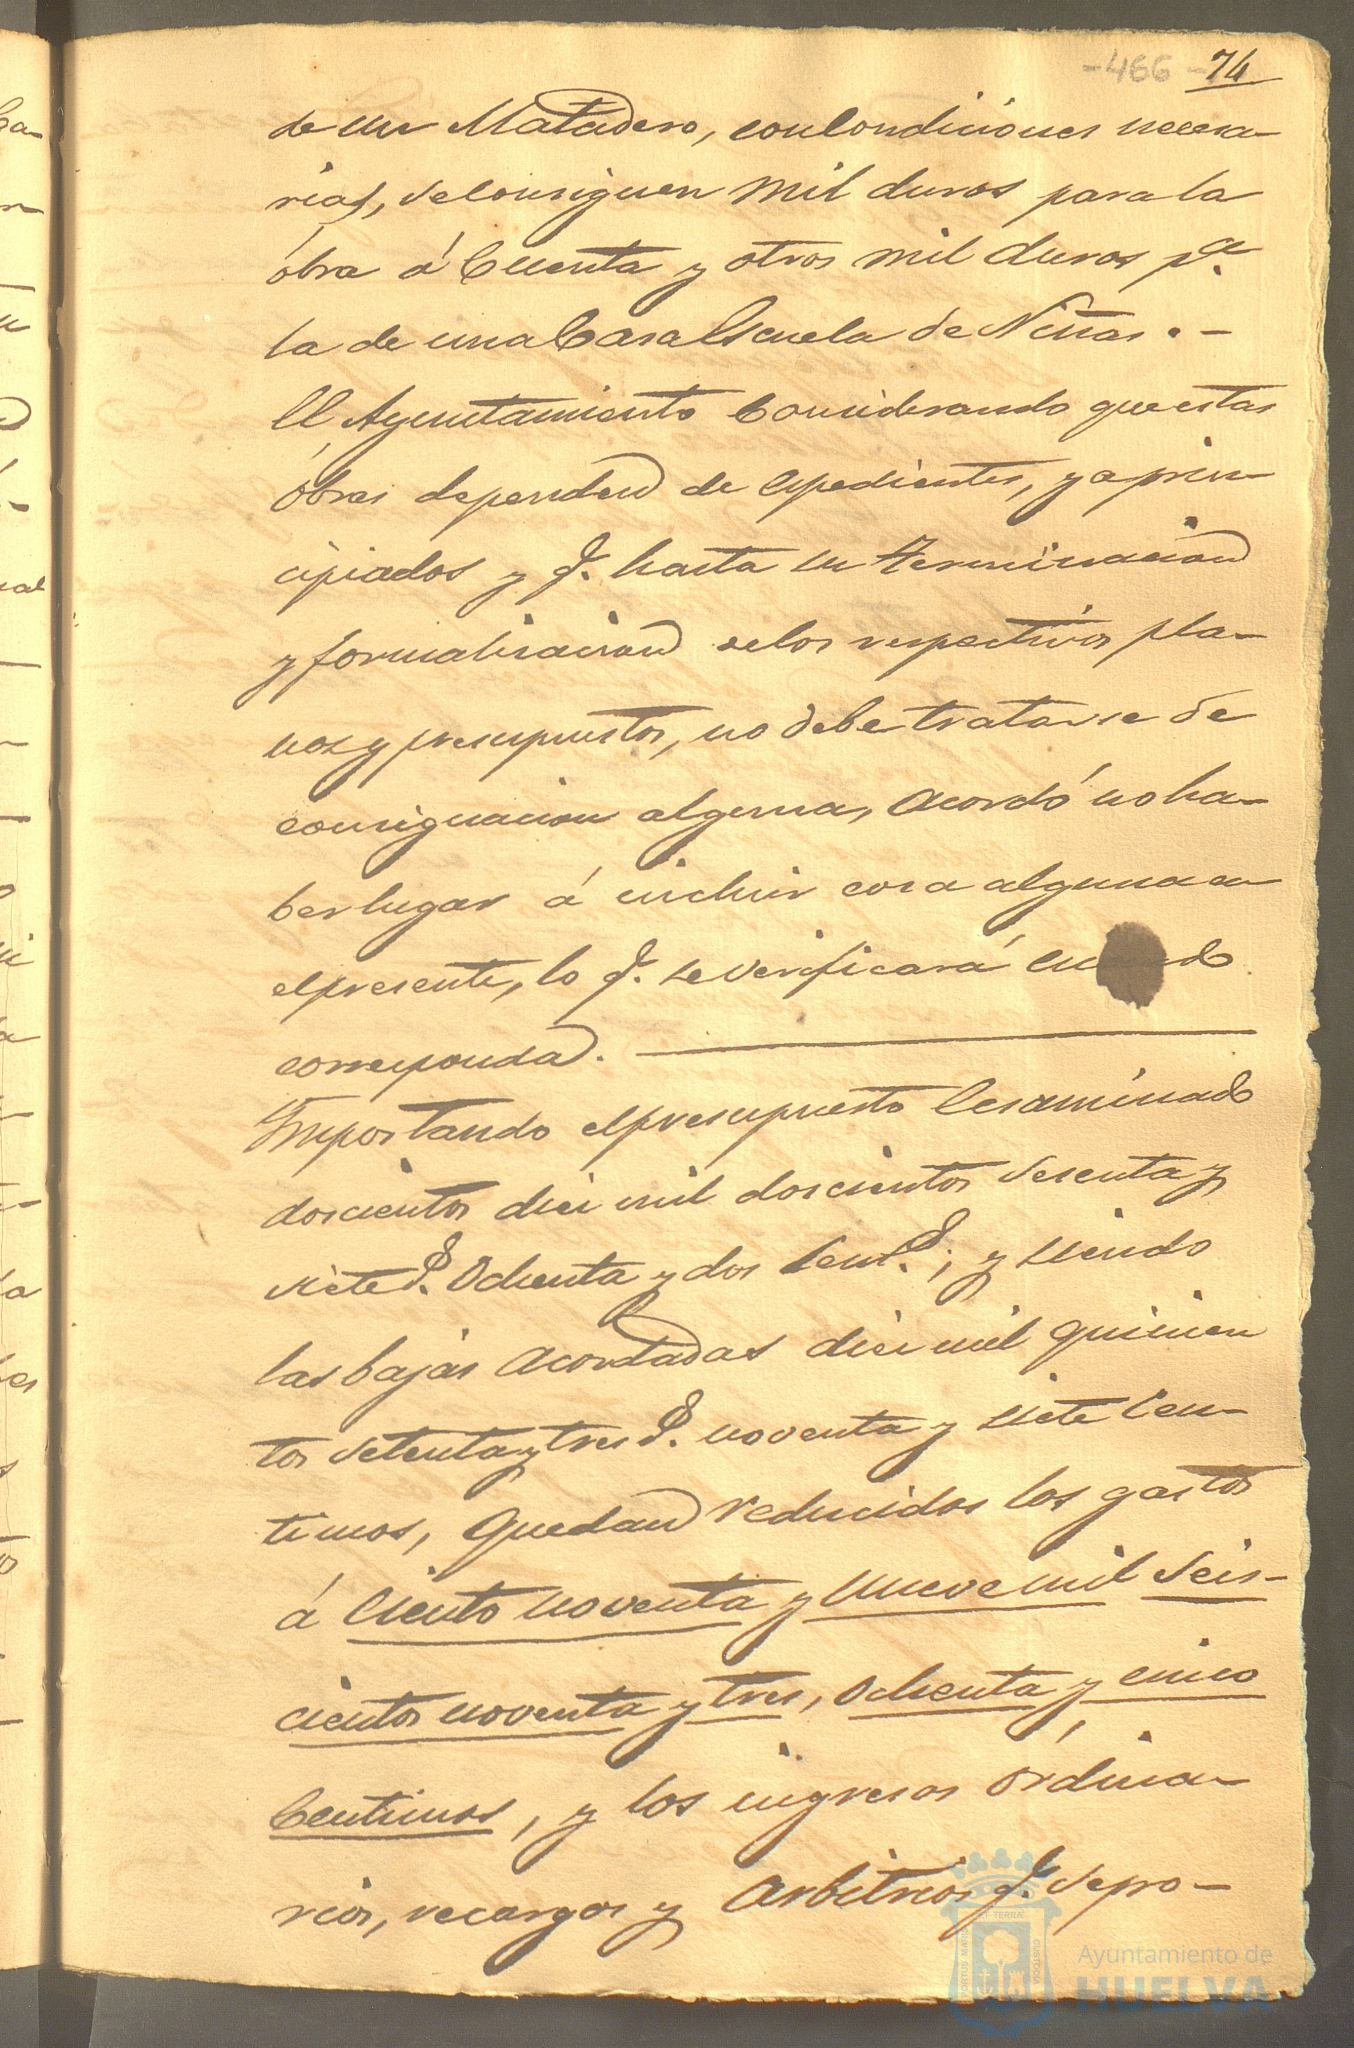 -466- 74
de un Matadero, con Condiciones necesa-
rias, se Consiguen mil duros para la
óbra á Cuenta y otros mil duros pª.
la de una Casa Escuela de Niñas. -
El Ayuntamiento Considerando que estas
óbras dependen de Espedientes, ya prin-
cipiados y q. hasta su terminacion
y formalisacion de los respectivos pla-
nos y presupuestos, no debe tratarse de
consignacion alguna, acordó no ha-
ber lugar á incluir cosa alguna en
el presente, lo q. se verificará cuando
corresponda.
Importando el presupuesto Ecsaminado
doscientos diez mil doscientos sesenta y
siete P.s ochenta y dos Cent.s; y siendo
las bajas acordadas diez mil quinien
tos setenta y tres P.s noventa y siete Cen-
timos, quedan reducidos los gastos
á Ciento noventa y nueve mil seis-
cientos noventa y tres, ochenta y cinco
Centimos, y los ingresos órdina-
rios, recargos y arbitrios q.e se pro-
Ayuntamiento de
HUELVA